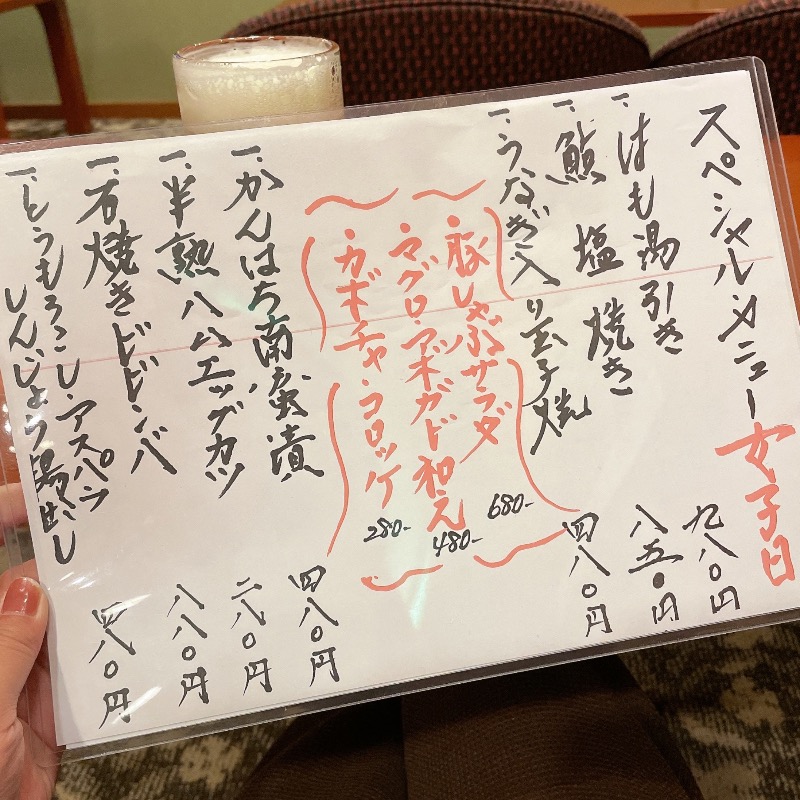 スペシャルメニュー 女子日
一.はも湯引き 九八〇円
一.鮎塩焼き 八五〇円
一.うなぎ入り玉子焼 四八〇円
・豚しゃぶサラダ 680-
・マグロ・アボガド和え 480-
・カボチャ・コロッケ 280-
一.かんぱち南蛮漬 四八〇円
一.半熟ハムエッグカツ 二八〇円
一.石焼きビビンバ 八八〇円
一.とうもろこし・アスパラ
しんじょう揚出し 四八〇円